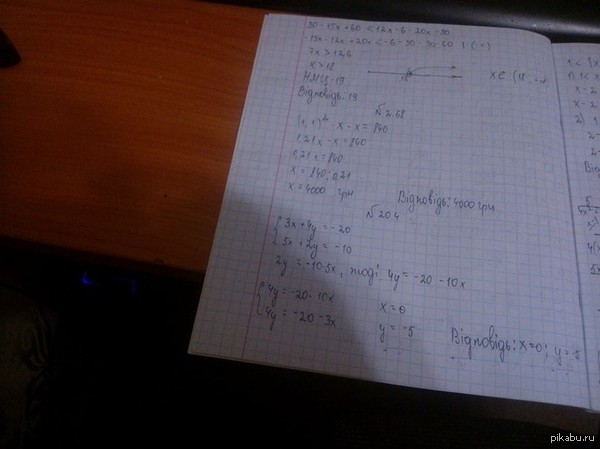 30 - 15x + 60 < 12x - 6 - 20x - 30
-15x - 12x + 20x < -6 - 30 - 30 - 60 | (-1)
7x > 126
x > 18
18
x ∈ (18
НМЦ - 19
Відповідь: 19
№ 2.68
(1,1)² x - x = 840
1,21x - x = 840
0,21x = 840
x = 840 : 0,21
x = 4000 грн
Відповідь: 4000 грн
№ 204
{ 3x + 4y = -20
{ 5x + 2y = -10
2y = -10 - 5x, тоді 4y = -20 - 10x
{ 4y = -20 - 10x
{ 4y = -20 - 3x
x = 0
y = -5
Відповідь: x = 0; y = -5
pikabu.ru